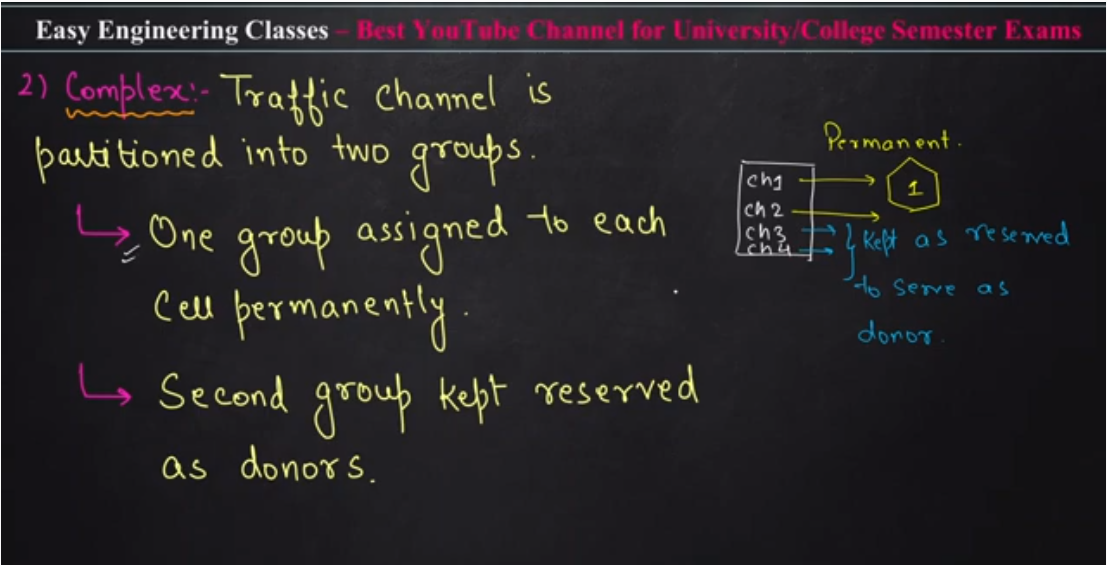 Easy Engineering Classes – Best YouTube Channel for University/College Semester Exams
2) Complex:- Traffic Channel is
partitioned into two groups.
One group assigned to each
Cell permanently.
Second group kept reserved
as donors.
Permanent.
ch1
1
ch2
ch3
ch4
kept as reserved
to serve as
donor.